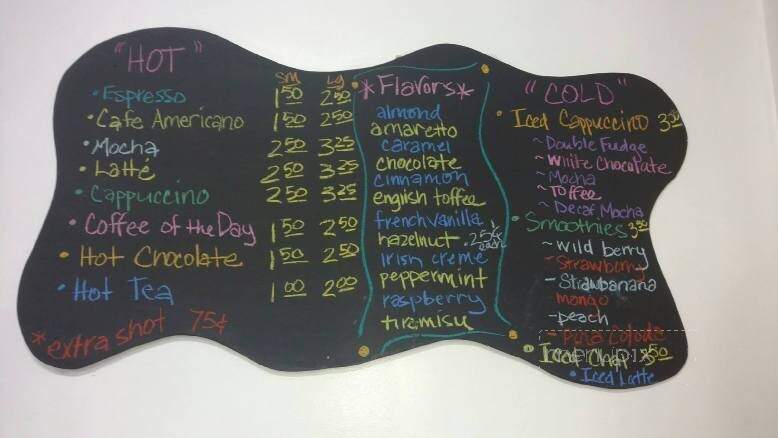 "HOT"
Sm Lg
• Espresso 1 50 2 50
• Cafe Americano 1 50 2 50
• Mocha 2 50 3 25
• Latté 2 50 3 25
• Cappuccino 2 50 3 25
• Coffee of the Day 1 50 2 50
• Hot Chocolate 1 50 2 50
• Hot Tea 1 00 2 00
*extra shot 75¢
*Flavors*
almond
amaretto
caramel
chocolate
cinnamon
english toffee
french vanilla
hazelnut .25¢ each
irish creme
peppermint
raspberry
tiramisu
"COLD"
• Iced Cappuccino 3 50
~ Double Fudge
~ White Chocolate
~ Mocha
~ Toffee
~ Decaf Mocha
• Smoothies 3 50
~ wild berry
~ Strawberry
~ Strawbanana
mango
~ peach
~ Pina Colada
• Iced Chai 3 50
• Iced Latte